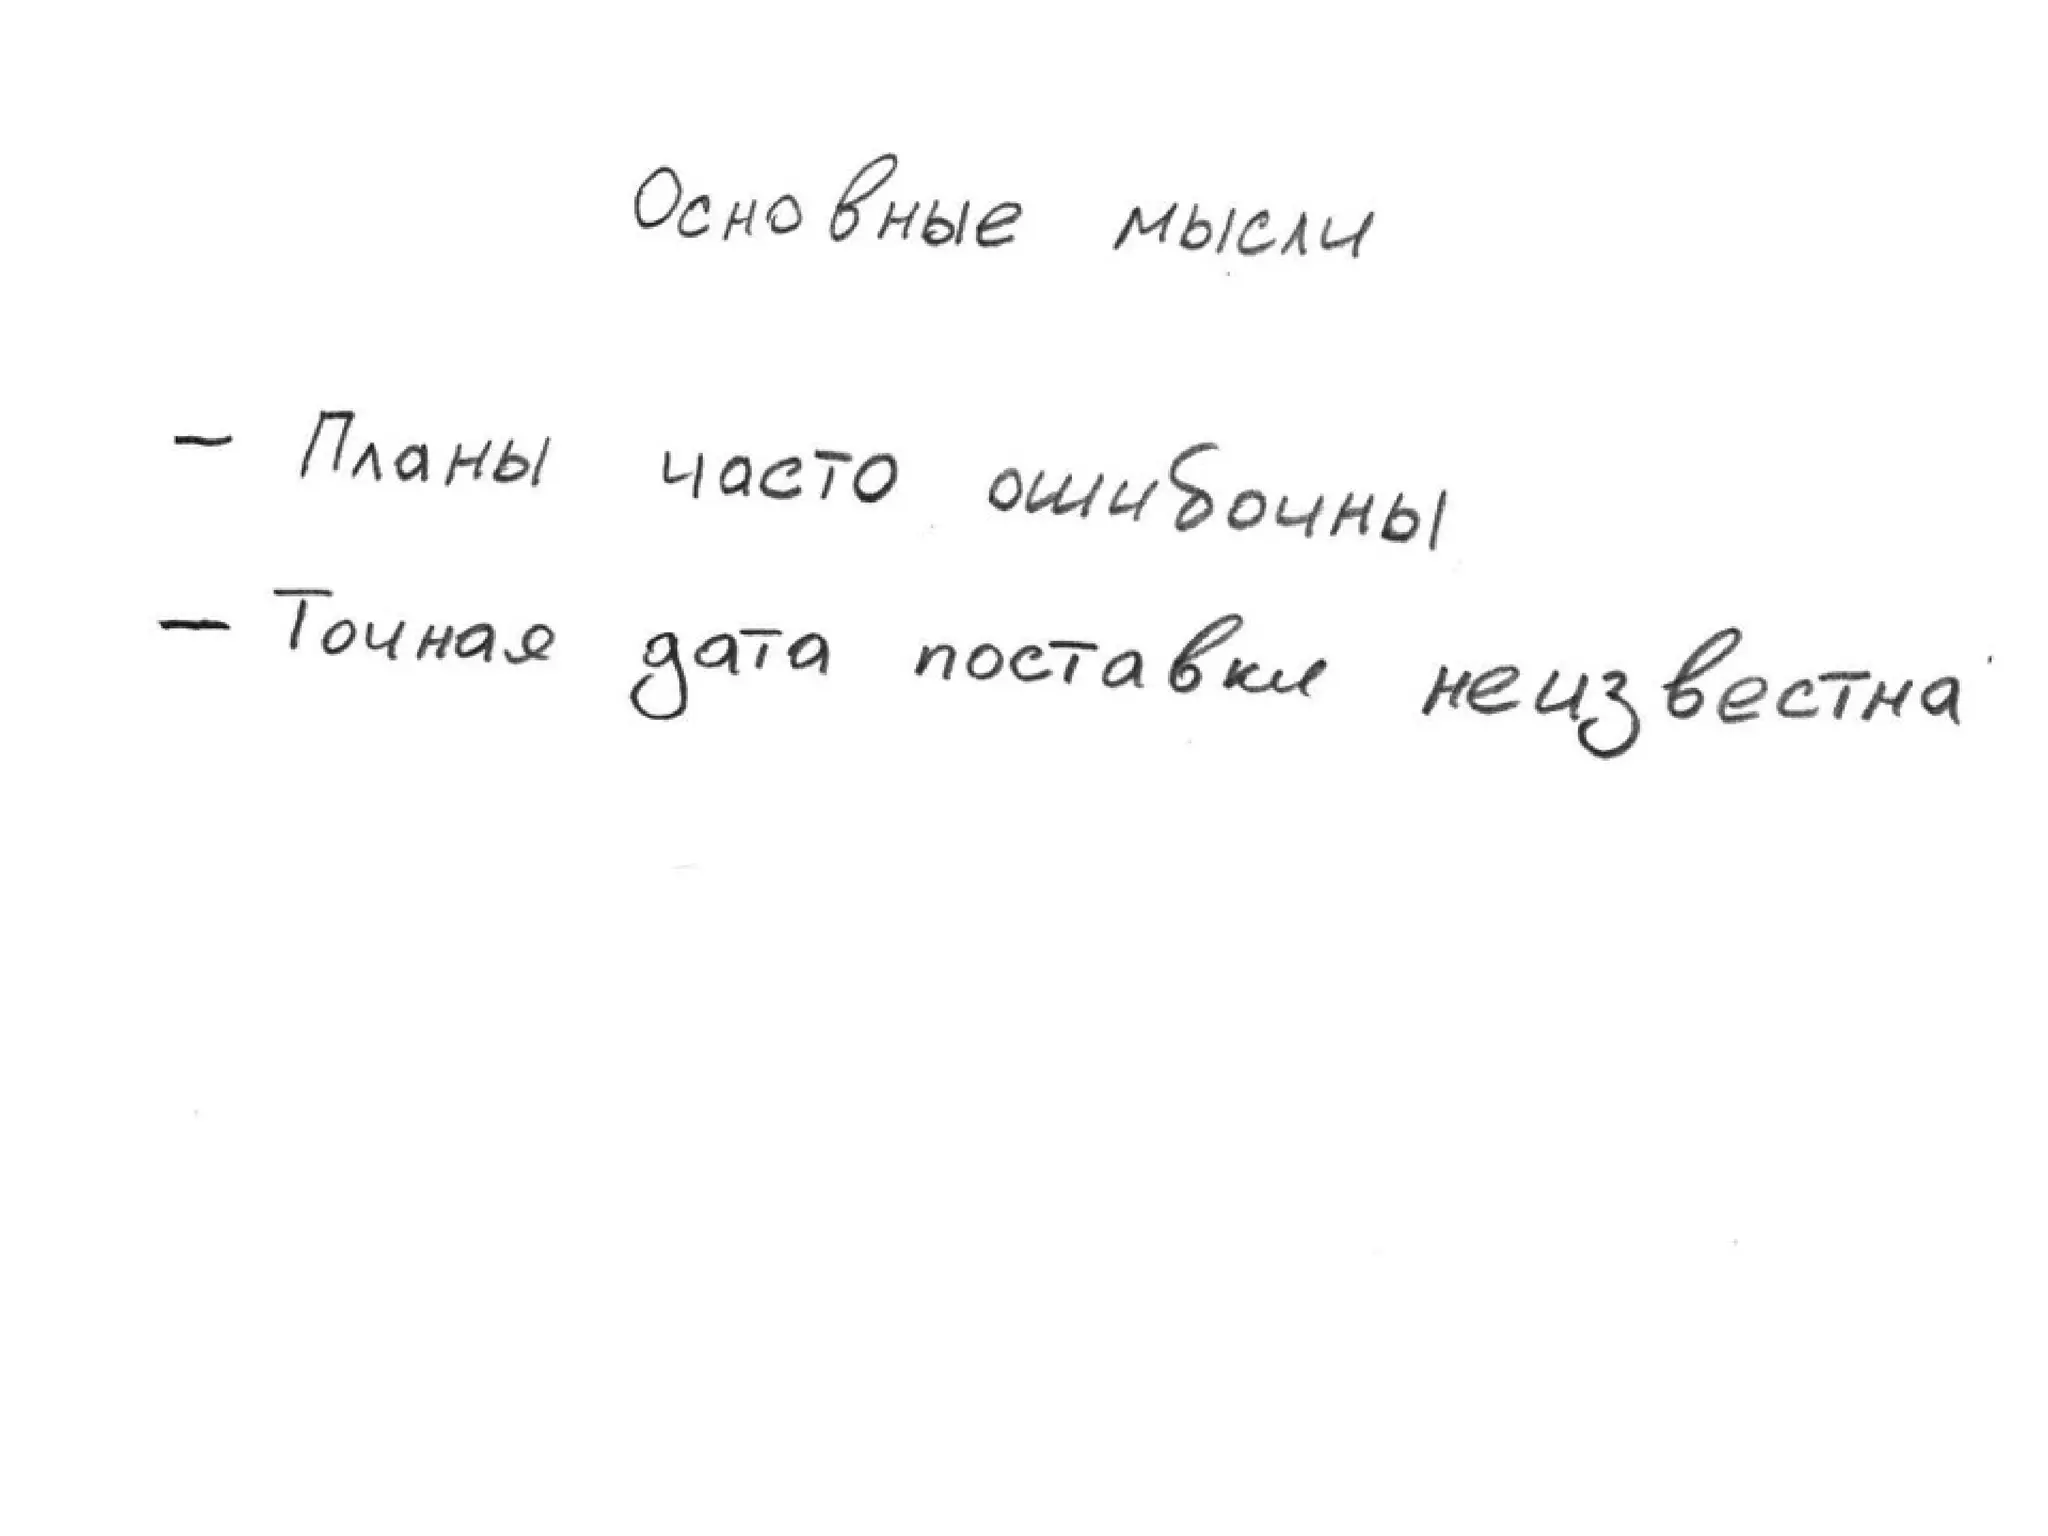 Основные мысли
- Планы часто ошибочны
- Точная дата поставки неизвестна